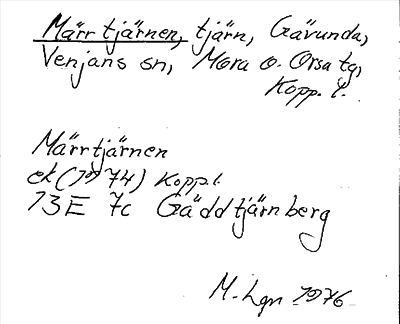 Märrtjärnen, tjärn, Gävunda,
Venjans sn, Mora o. Orsa tg,
Kopp. l.
Märrtjärnen
ek (1974) Kopp. l.
13E 7c Gäddtjärnberg
M. Lgn 1976